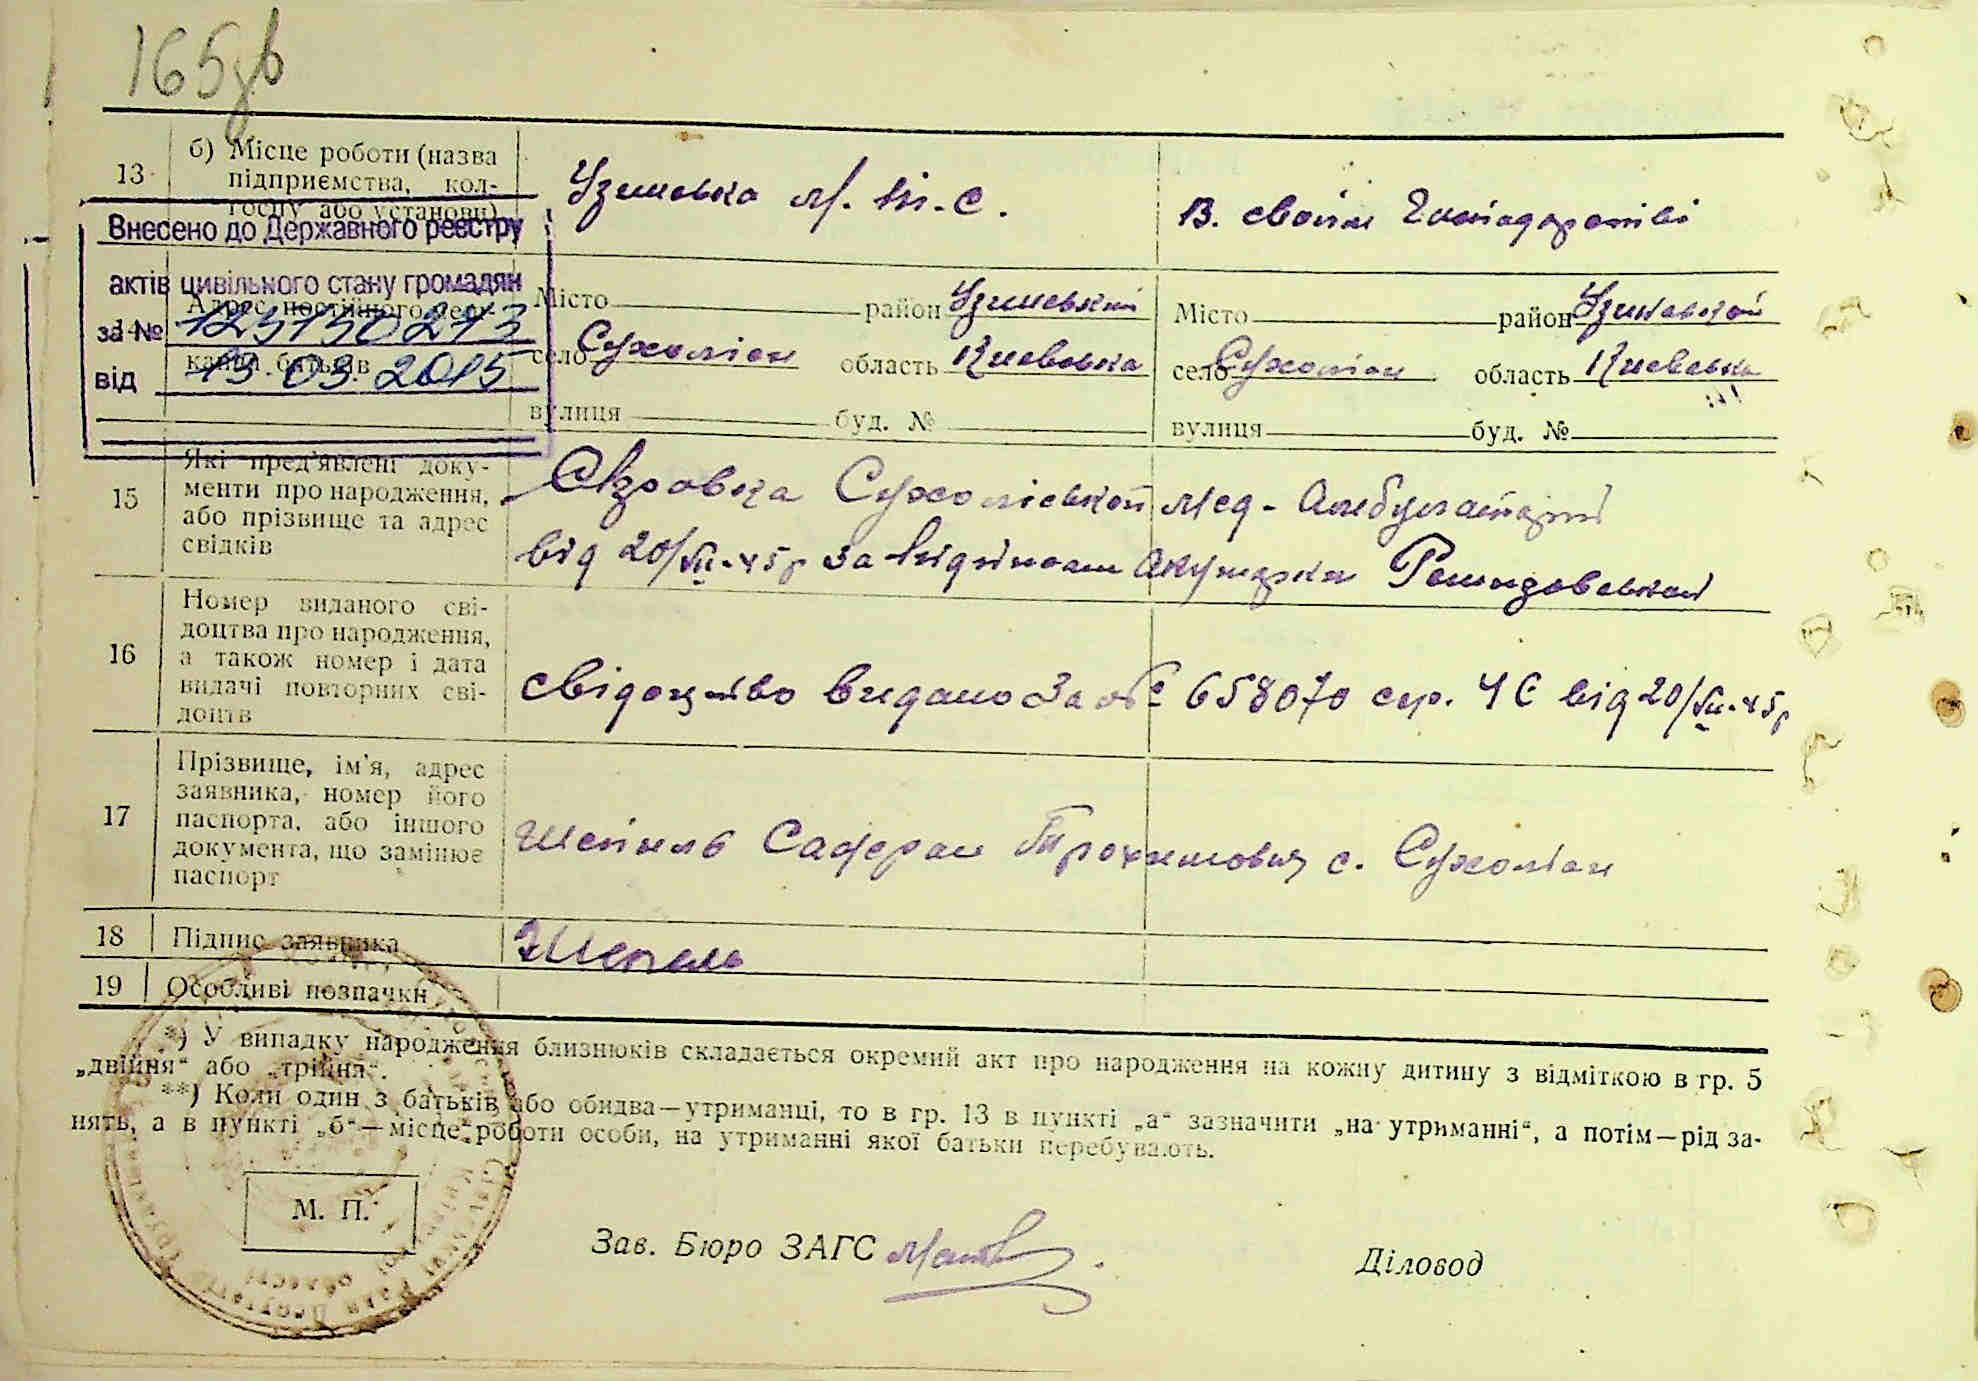 165зв
13
б) Місце роботи (назва
підприємства, кол-
госпу або установи)
Узиновка М. Т. С.
В. своїм Господарстві
Внесено до Державного реєстру
актів цивільного стану громадян
за №
від 13.03.2015
14
Адрес постійного меш-
кання батьків
Місто район Узиновский
село Сухоліси область Киевска
вулиця буд. №
Місто район Узиновской
село Сухоліси область Киевска
вулиця буд. №
15
Які пред'явлені доку-
менти про народження,
або прізвище та адрес
свідків
Сухоліской мед-Амбулаторії
від 20/VII-45р за підписом Акушерки
16
Номер виданого сві-
доцтва про народження,
а також номер і дата
видачі повторних сві-
доцтв
свідоцтво видано За № 658070 сер. ЧС від 20/VII-45р
17
Прізвище, ім'я, адрес
заявника, номер його
паспорта, або іншого
документа, що замінює
паспорт
Шепель Сафрон Трохимович с. Сухоліси
18
Підпис заявника
Шепель
19
Особливі позначки
*) У випадку народження близнюків складається окремий акт про народження на кожну дитину з відміткою в гр. 5
„двійня“ або „трійня“.
**) Коли один з батьків або обидва—утриманці, то в гр. 13 в пункті „а“ зазначити „на утриманні“, а потім—рід за-
нять, а в пункті „б“—місце роботи особи, на утриманні якої батьки перебувають.
М. П.
Зав. Бюро ЗАГС
Діловод